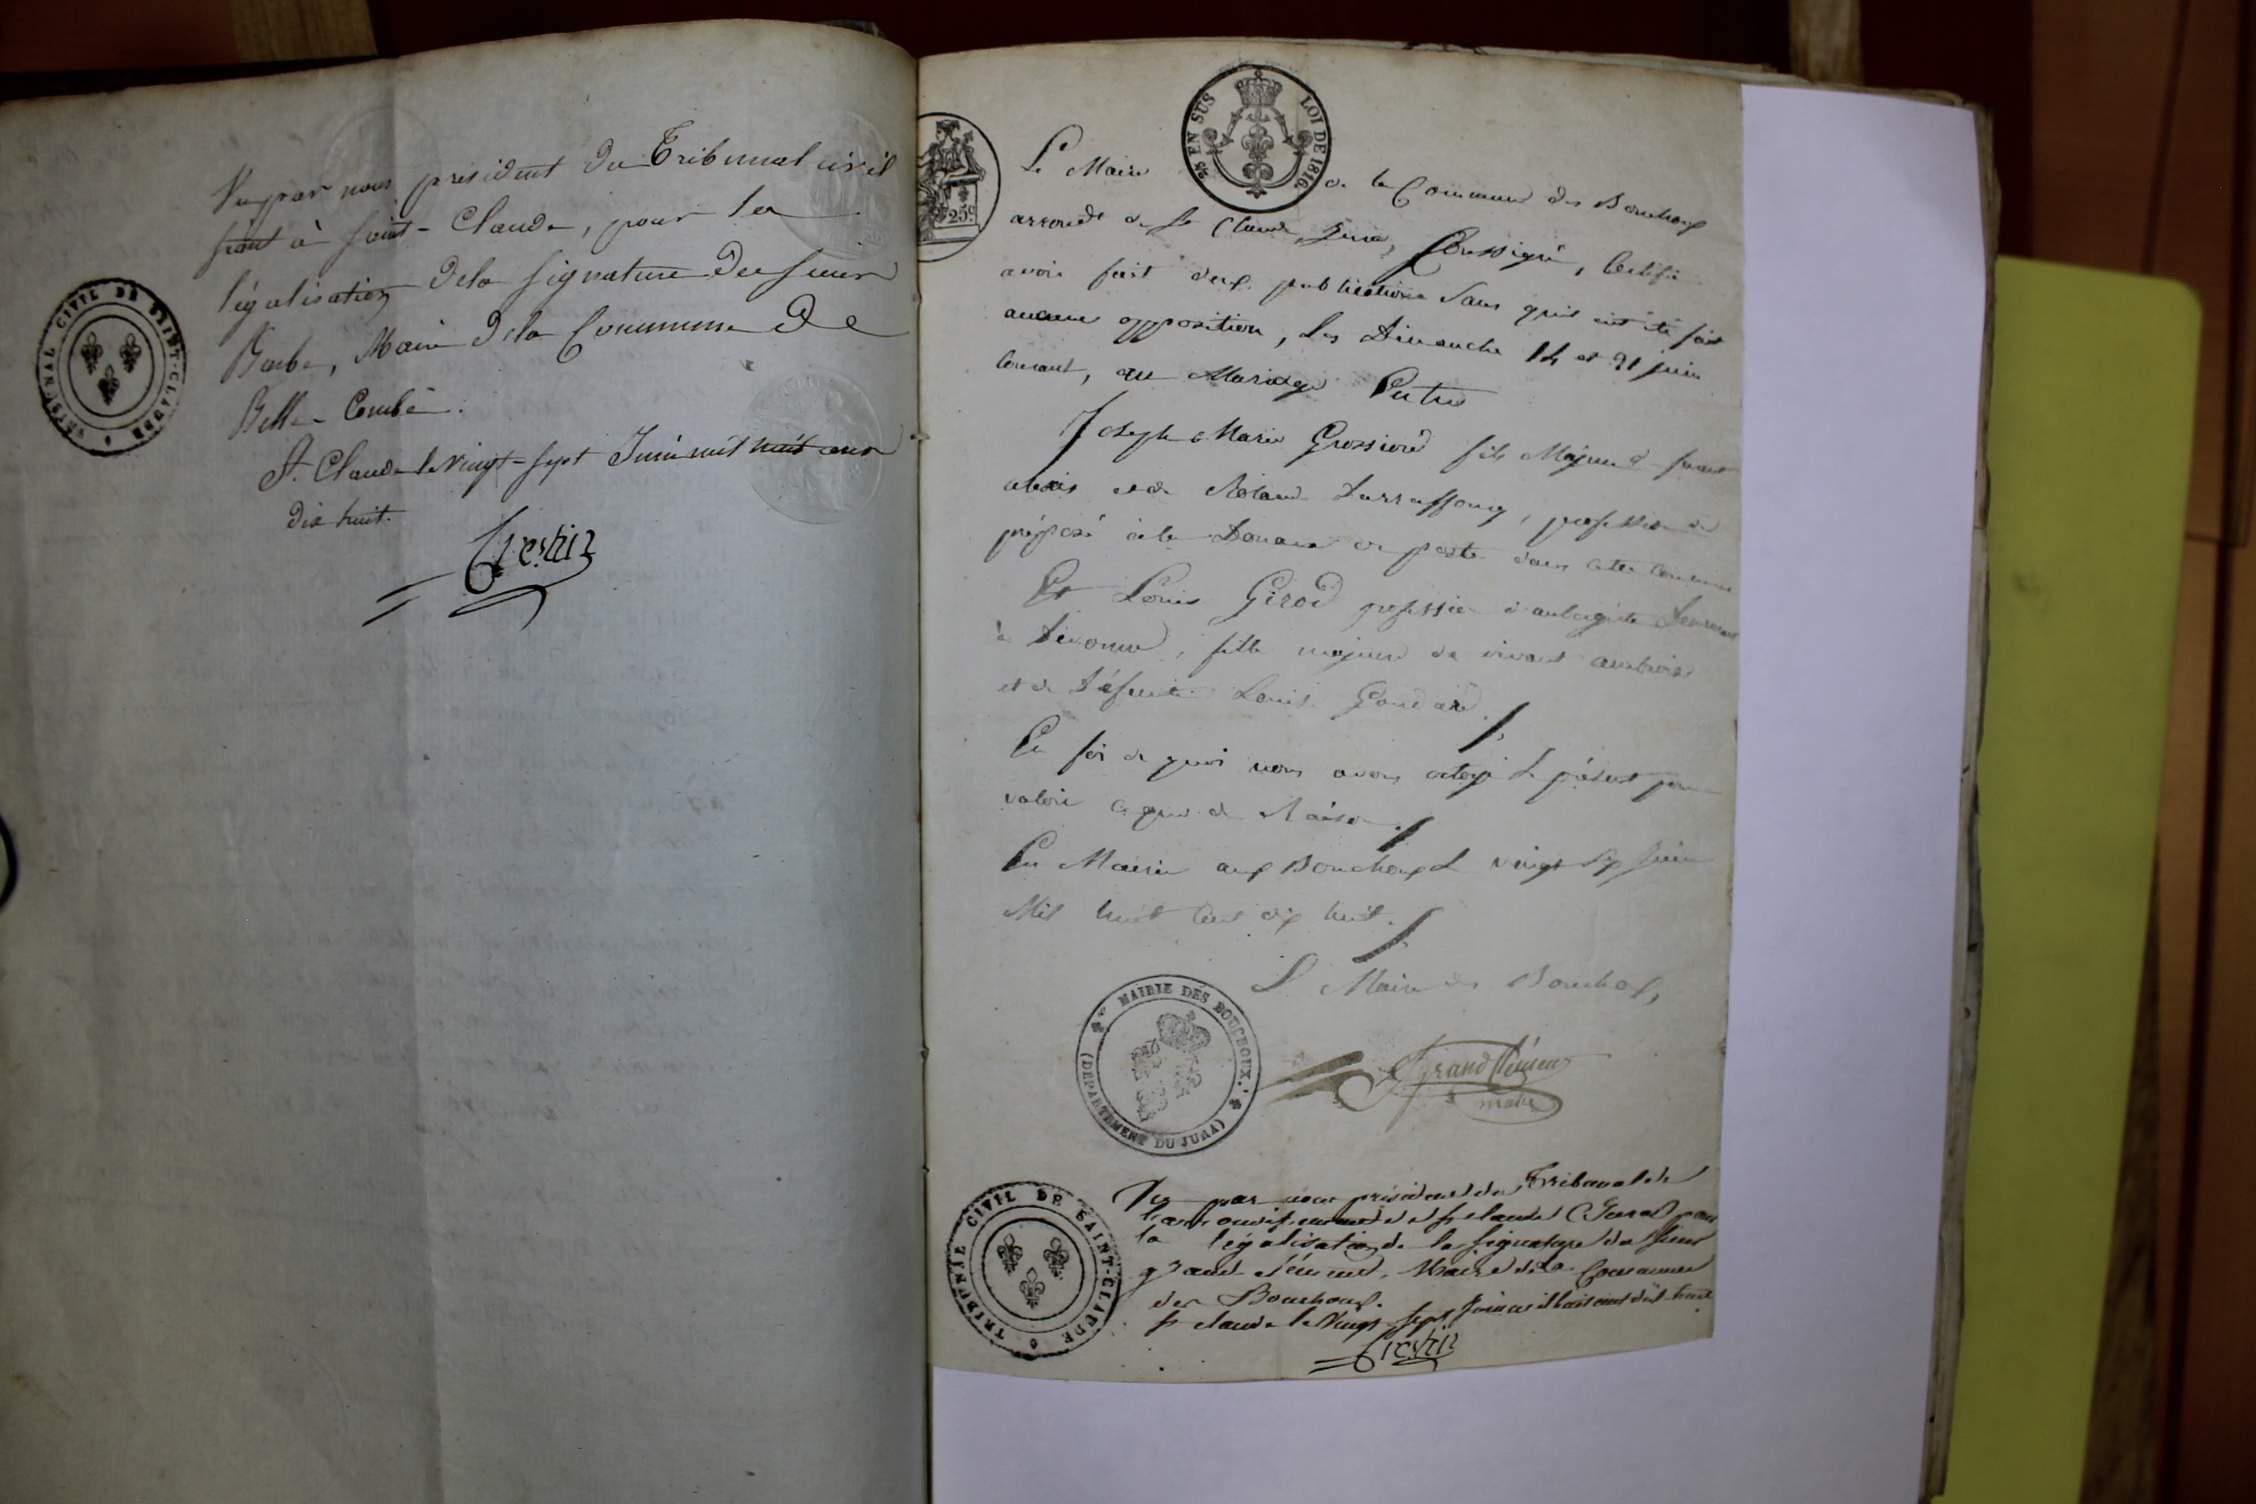 Vu par nous président du Tribunal civil
séant à Saint-Claude, pour la
légalisation de la signature du sieur
Barbe, Maire de la Commune de
Belle-Combe.
St. Claude le vingt-sept Juin mil huit cent
dix huit.
Crestin
TRIBUNAL CIVIL DE SAINT-CLAUDE
25 c
25 EN SUS LOI DE 1816
Le Maire de la Commune des Bouchoux
arrondt de St Claude, Jura, Soussigné, Certifie
avoir fait deux publications sans qu'il ait été fait
aucune opposition, Les Dimanche 14 et 21 juin
Courant, au Mariage Entre
Joseph Marie Grossiord fils Majeur de
et de profession de
préposé à la Douane de poste dans cette commune
Et Louise Girod profession d'aubergiste demeurant
à Divonne, fille majeure de vivant
et de Défunte Louise Goudard.
En foi de quoi nous avons octroyé le présent pour
valoir ce que de Raison.
En Mairie aux Bouchoux Le vingt six Juin
Mil huit Cent dix huit.
Le Maire des Bouchoux,
Grandclément
maire
MAIRIE DES BOUCHOUX.
(DEPARTEMENT DU JURA)
TRIBUNAL CIVIL DE SAINT-CLAUDE
Vu par nous président du Tribunal de
l'arrondissement de St Claude (Jura) pour
la légalisation de la signature du sieur
grand clément, Maire de la Commune
des Bouchoux.
St claude le Vingt sept Juin mil huit cent dix huit
Crestin